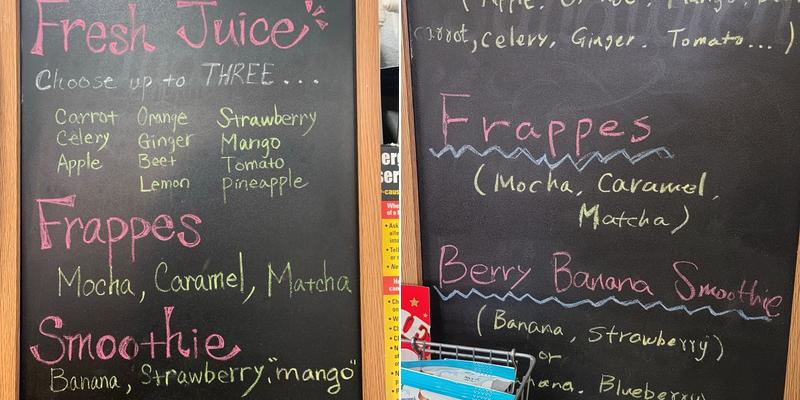 Fresh Juice
Choose up to THREE...
Carrot Orange Strawberry
Celery Ginger Mango
Apple Beet Tomato
Lemon Pineapple
Frappes
Mocha, Caramel, Matcha
Smoothie
Banana, Strawberry, "mango"
carrot, Celery, Ginger, Tomato...)
Frappes
(Mocha, Caramel,
Matcha)
Berry Banana Smoothie
(Banana, Strawberry)
or
Blueberry)